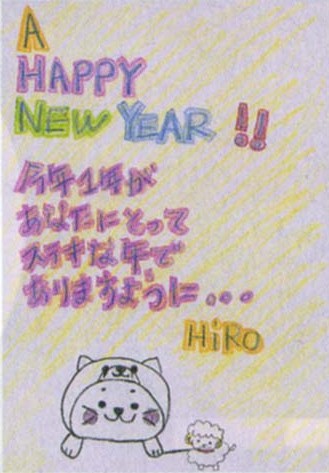 A
HAPPY
NEW YEAR !!
今年1年が
あなたにとって
ステキな年で
ありますように...
HiRO